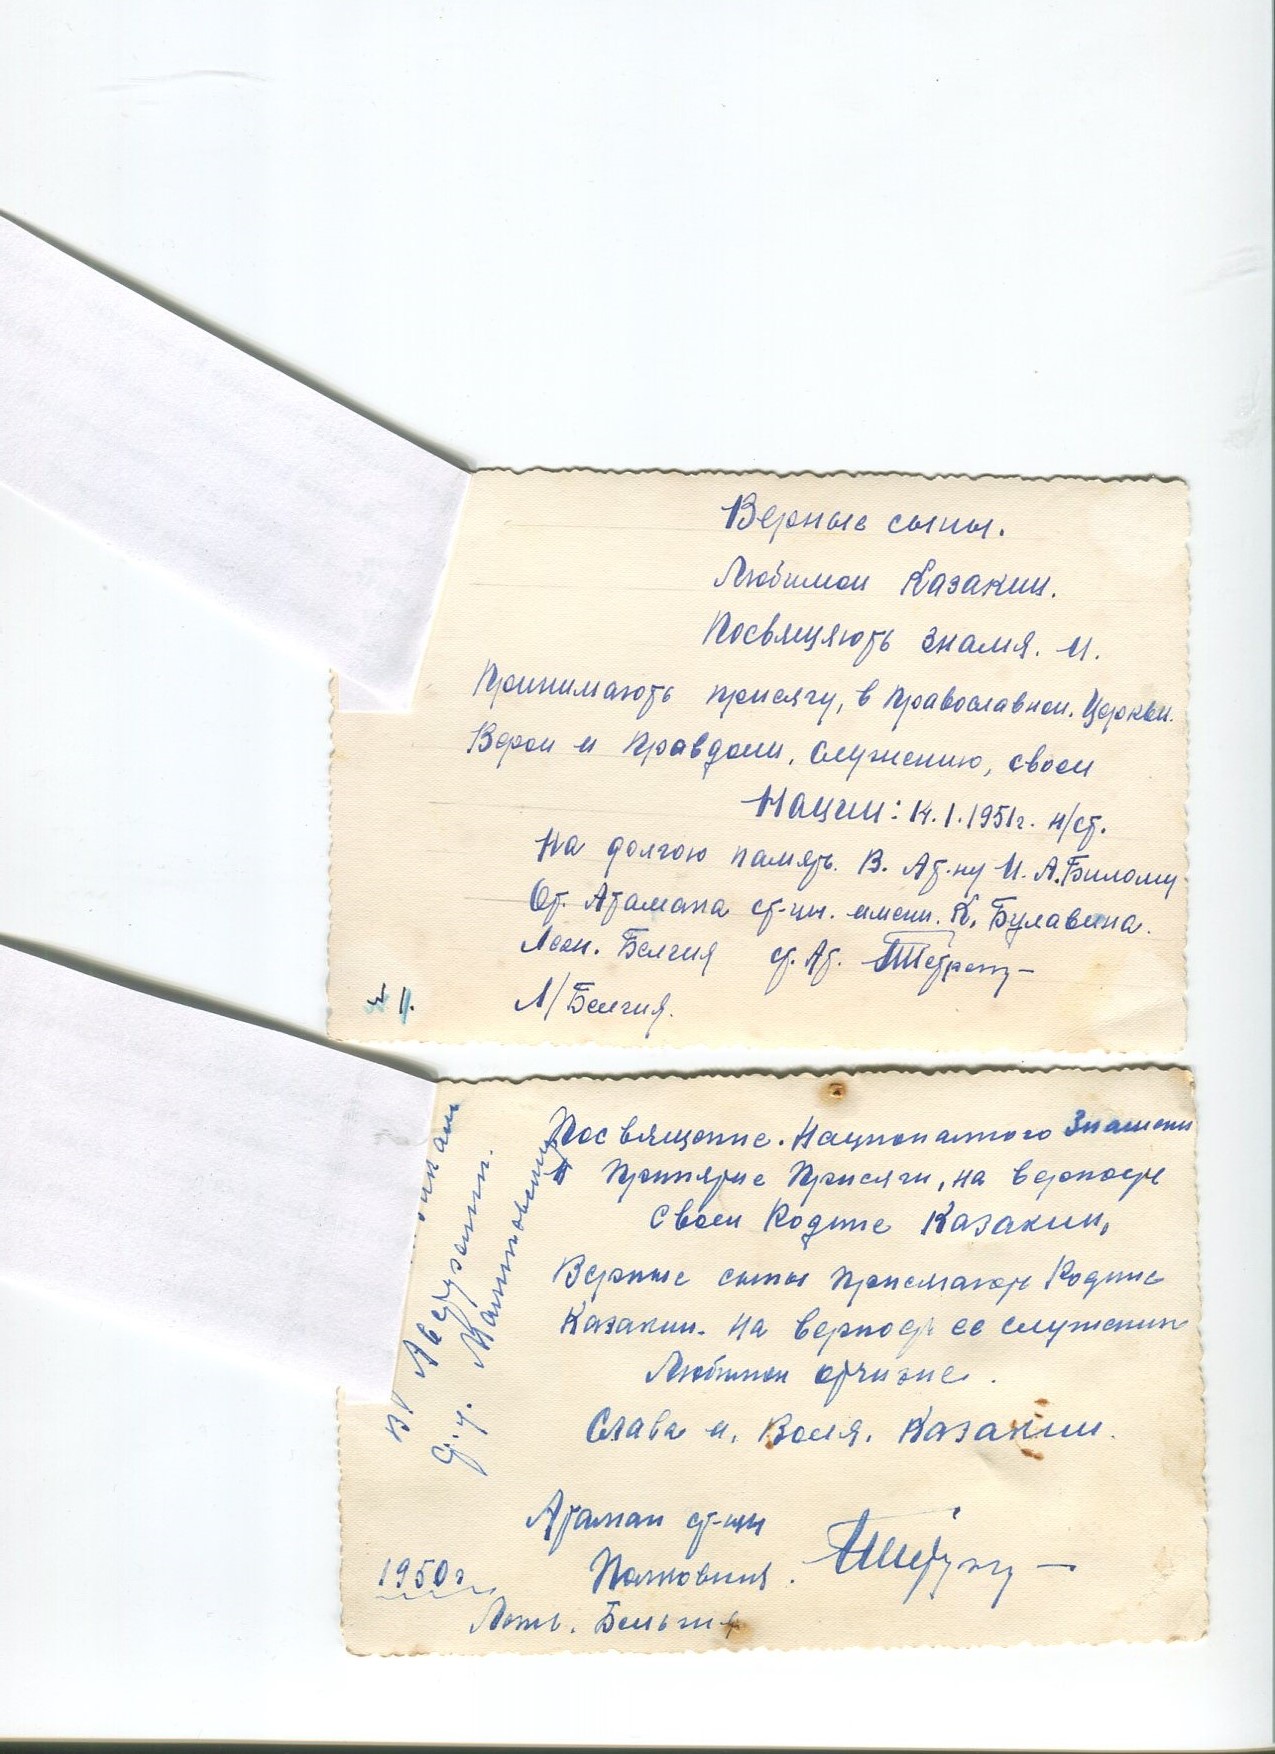 Верные сыны.
Любимои Казакии.
Посвящяють знамя. И.
Принимають присягу, в Православнои. Церкви.
Верои и Правдои, служению, своеи
Нации: 14.1.1951г. н/ст.
На долгою память. В. Ат.ну И. А. Билому
От. Атамана ст-цы. имени. К. Булавина.
Белгия ст. Ат.
Л/Белгия.
1.
Посвящение. Национального Знамени
И Принятие Присяги, на верность
Своеи Родине Казакии,
Верные сыны Присягають Родине
Казакии. На верность ее служении
Любимои отчизне.
Слава и. Воля. Казакии.
Атаман ст-цы
Полковник.
1950г
Бельгия